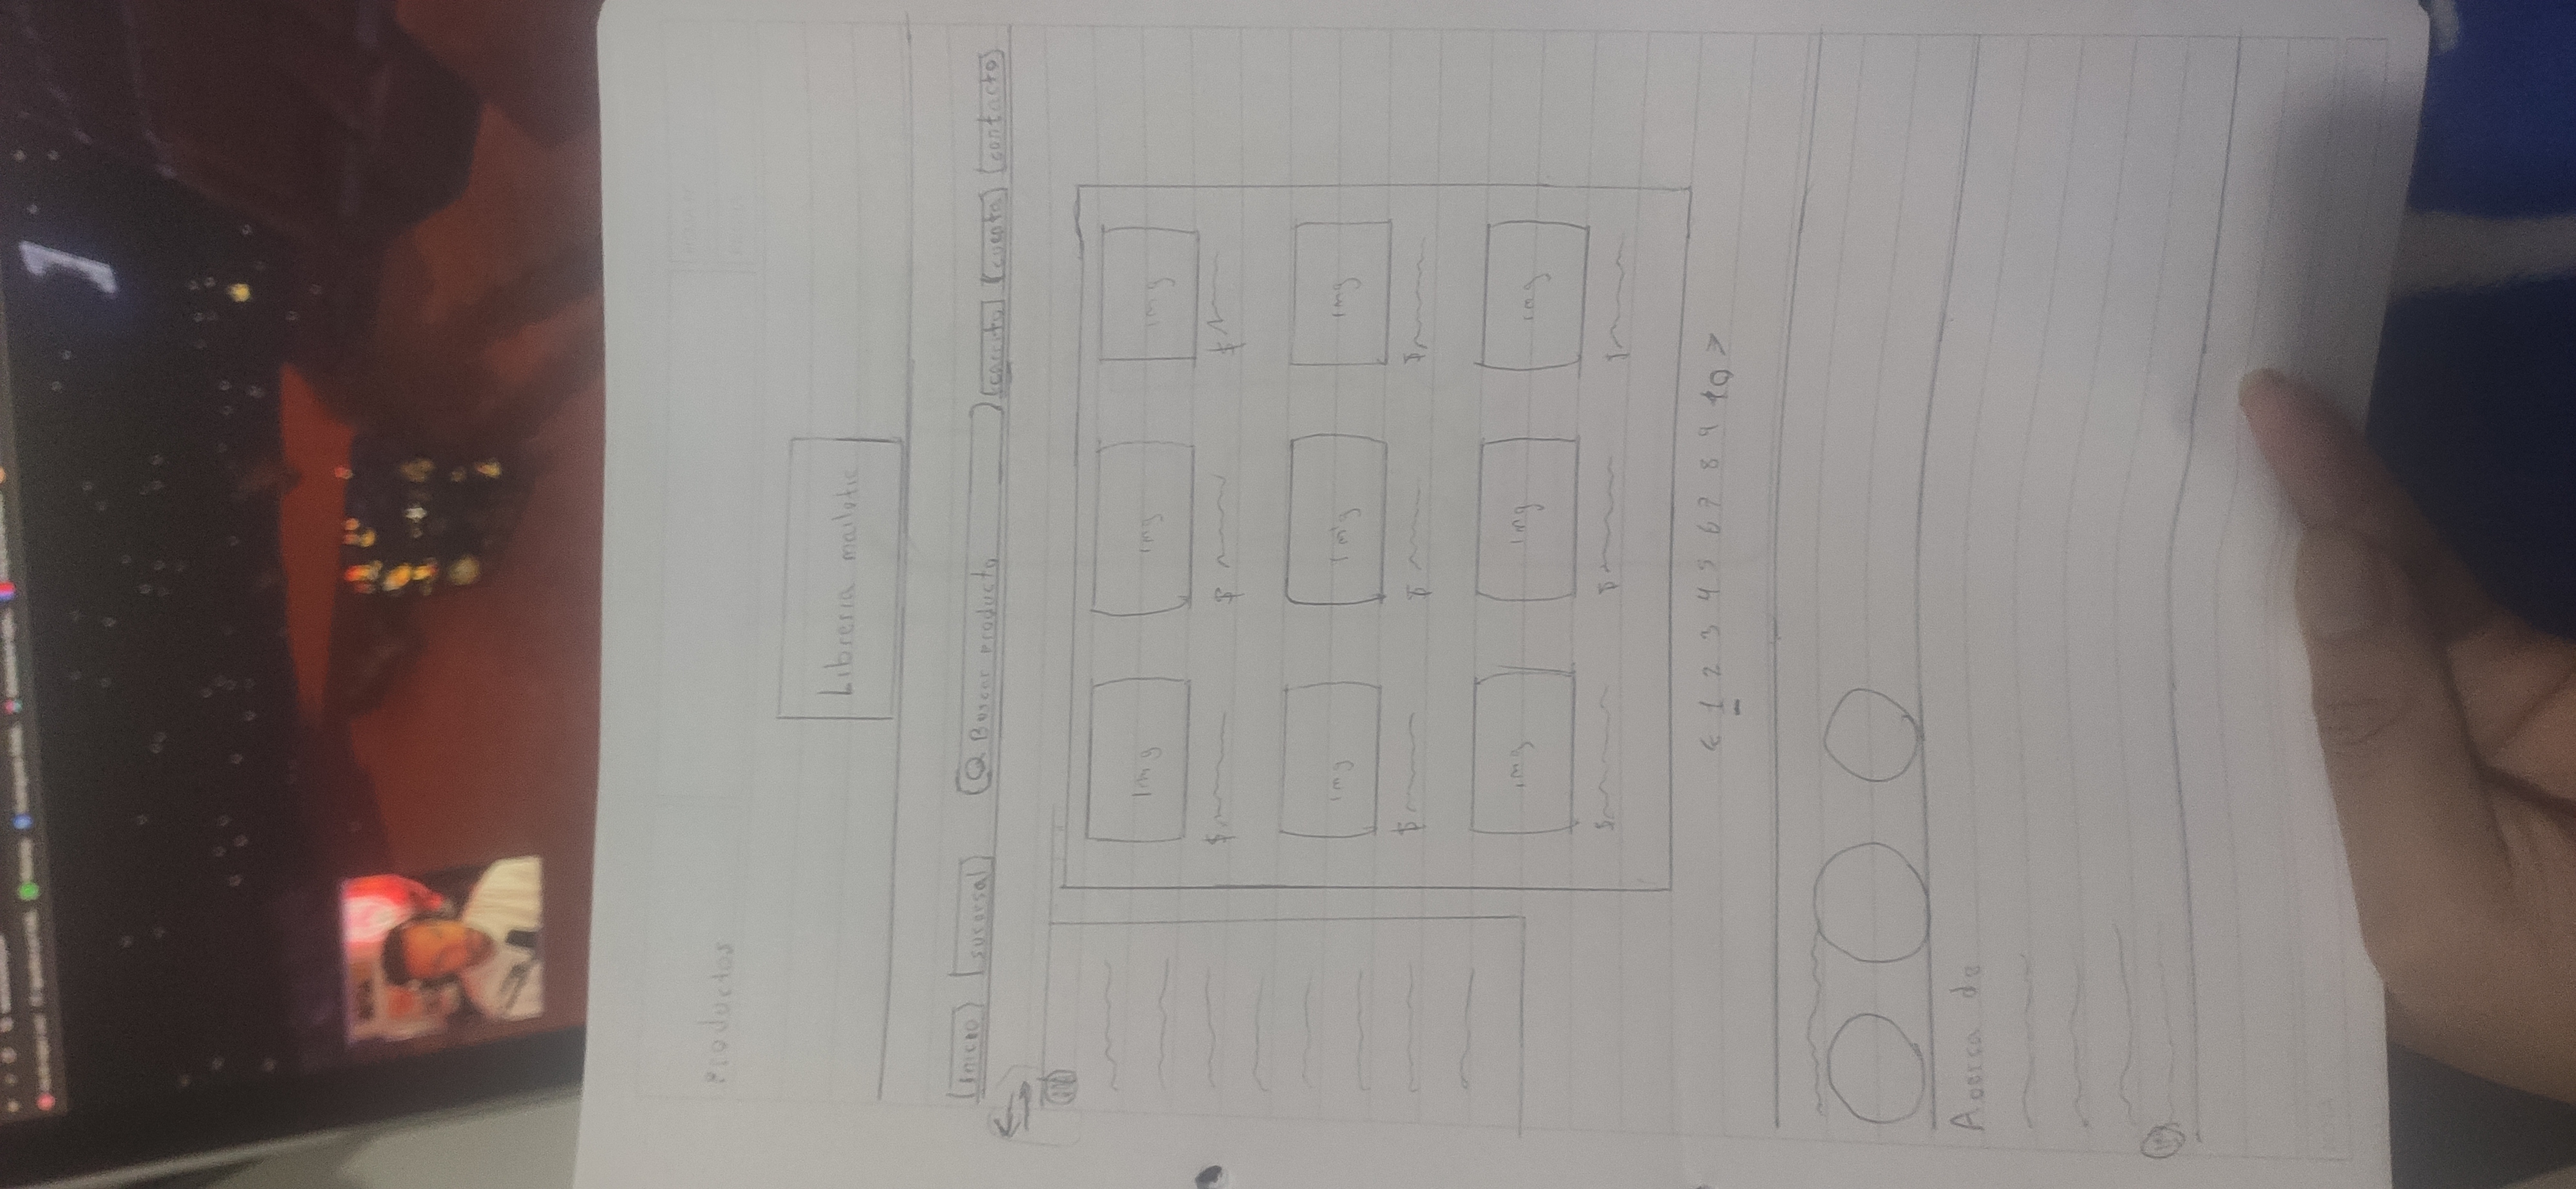 Productos
Libreria mailetic
Inicio sucursal Buscar producto carrito cuenta contacto
img img img
$ $ $
img img img
$ $ $
img img img
$ $ $
< 1 2 3 4 5 6 7 8 9 10 >
Acerca de